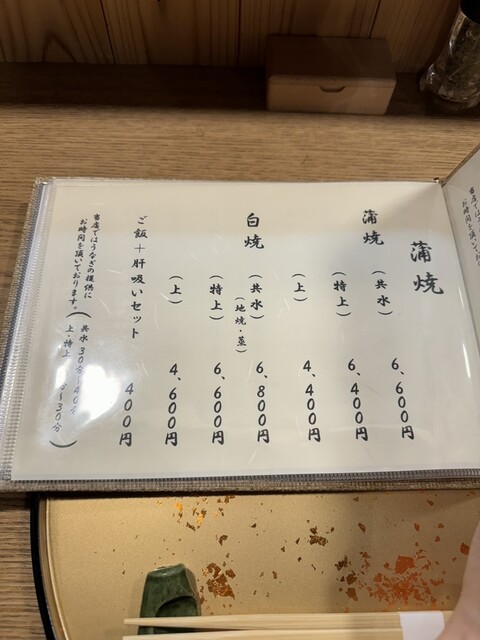 蒲焼
蒲焼 （共水） 6、600円
（特上） 6、400円
（上） 4、400円
白焼 （共水） 6、800円
（地焼・蒸）
（特上） 6、600円
（上） 4、600円
ご飯＋肝吸いセット 400円
当店ではうなぎの提供に
お時間を頂いております。
（共水 30分〜40分
上・特上 分〜30分）